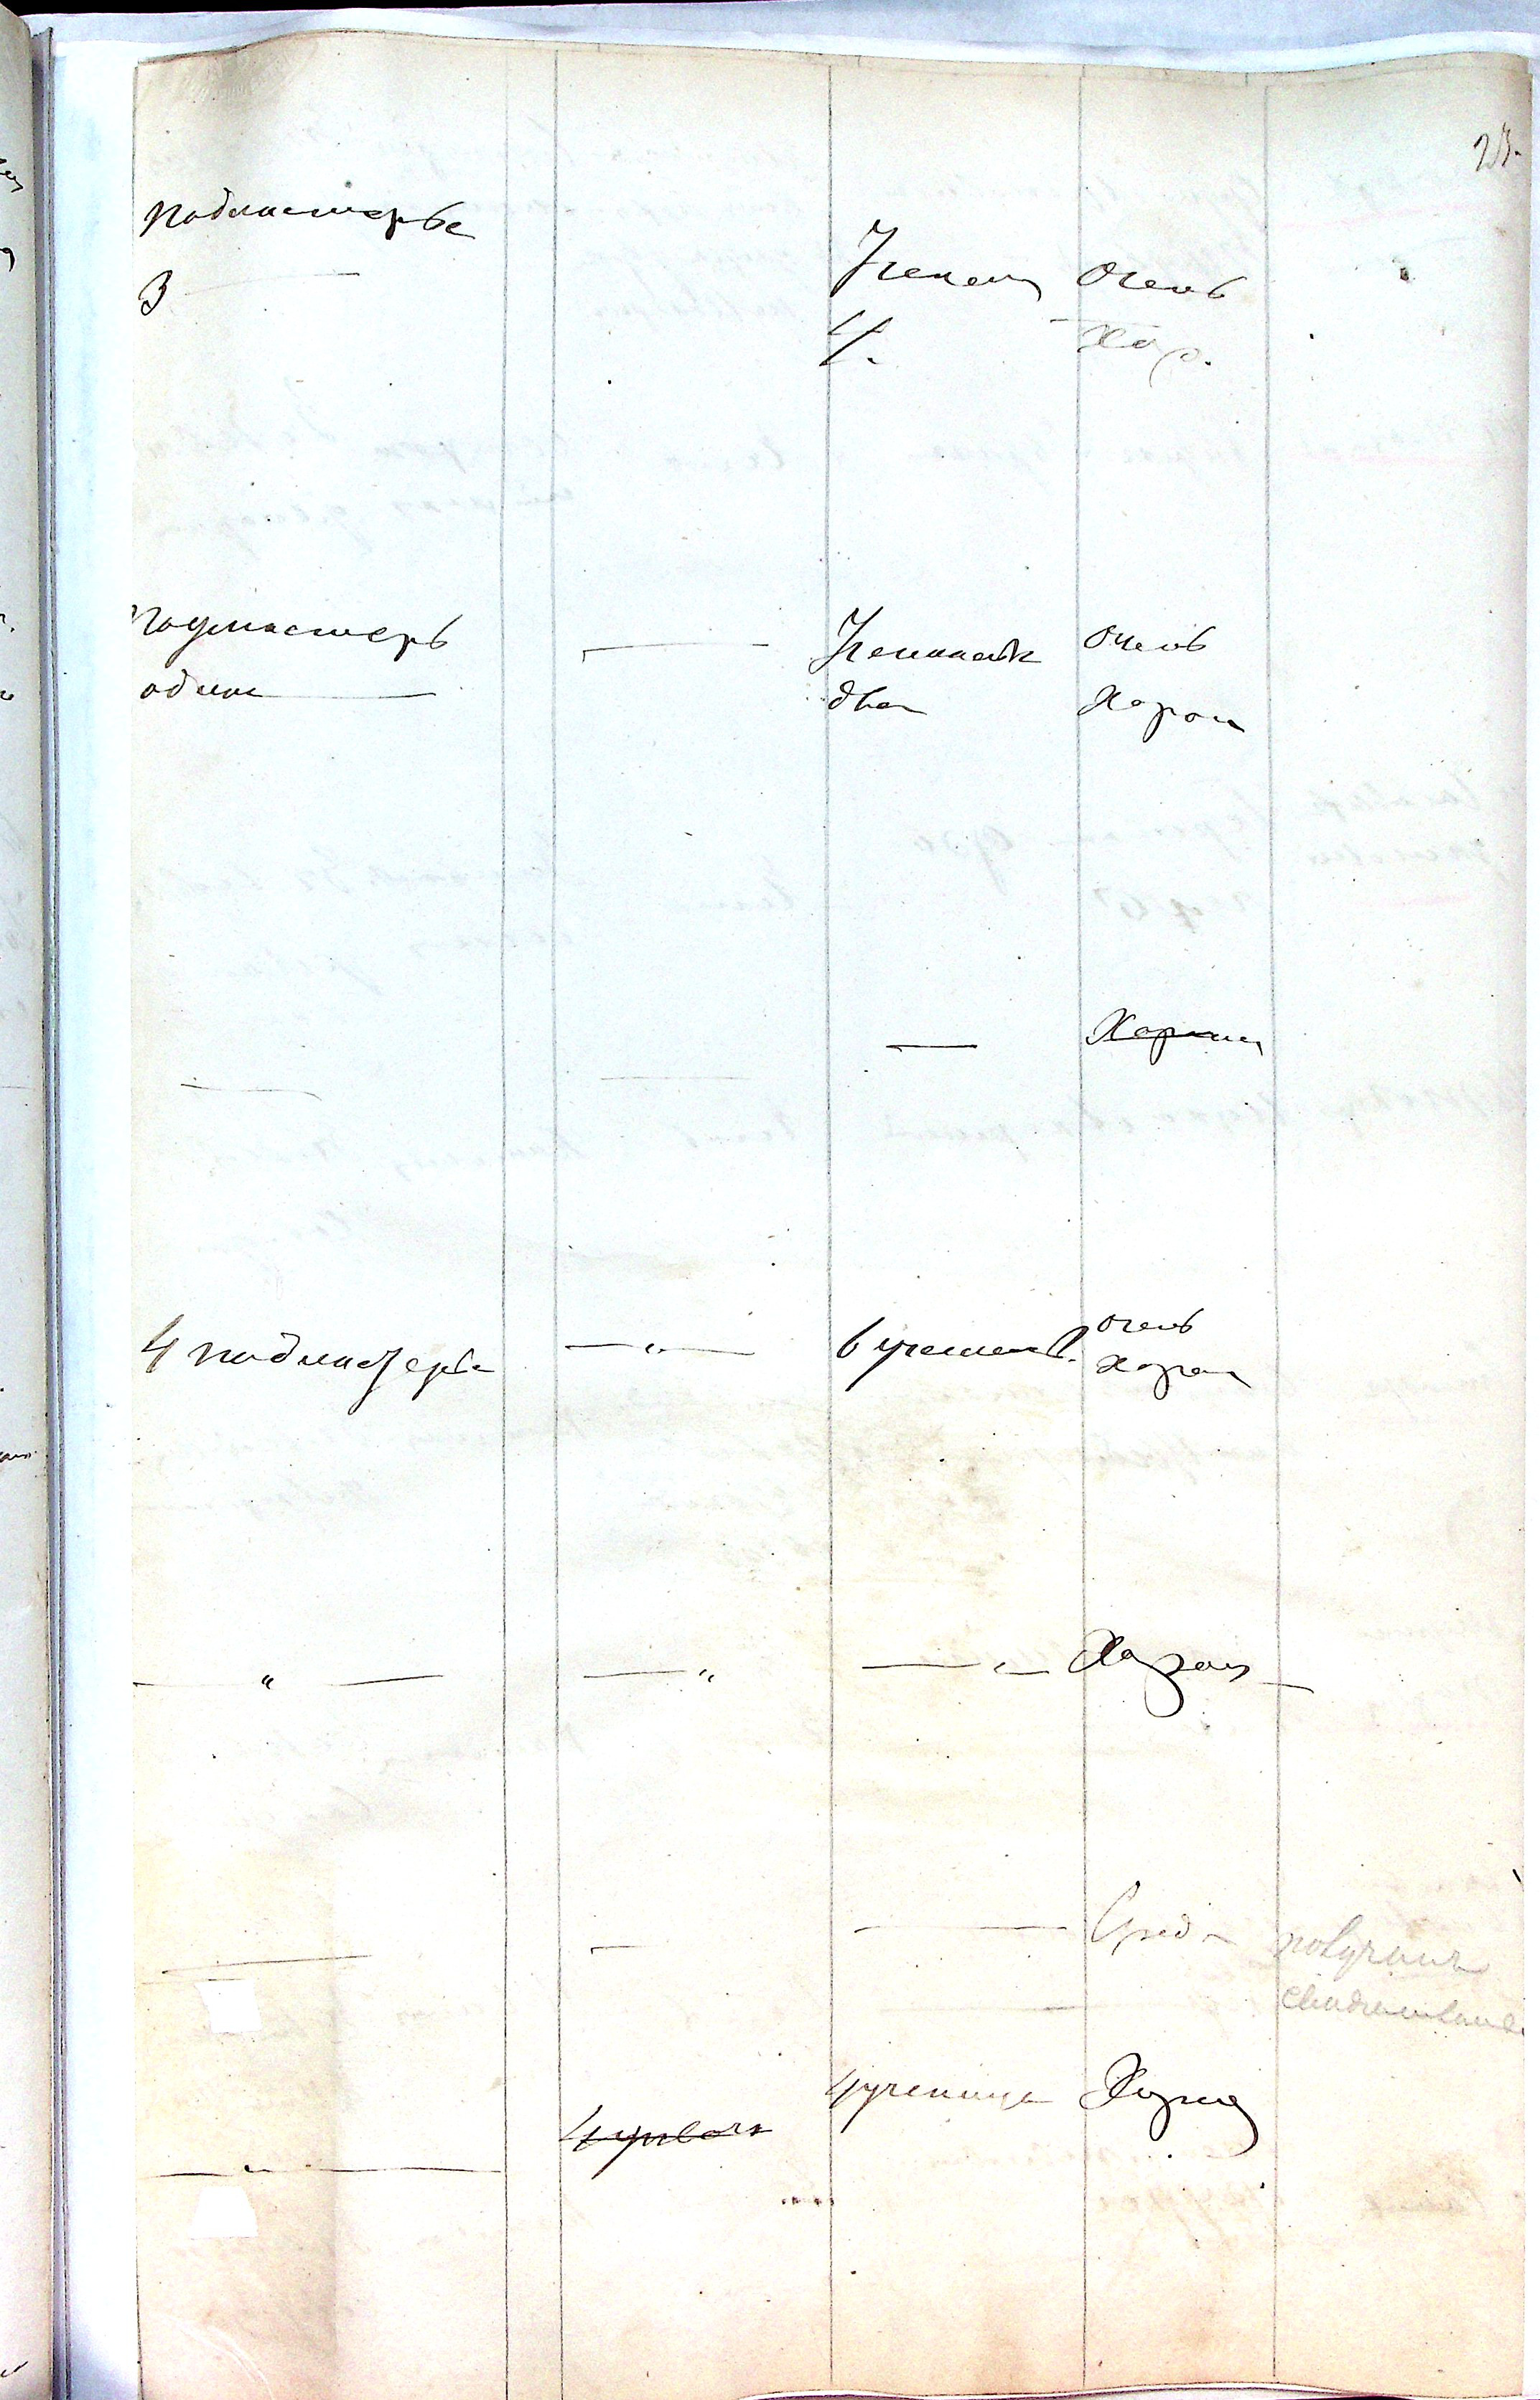 25.
Подмастерье
3
Ученик
4.
Очень
Хор.
подмастерь
один
Учеников
два
Очень
Хорош
Хорош
4 подмастерья
6 ученик.
очень
Хорош
Хорош
Сред
получил
4 ученица
Хорош